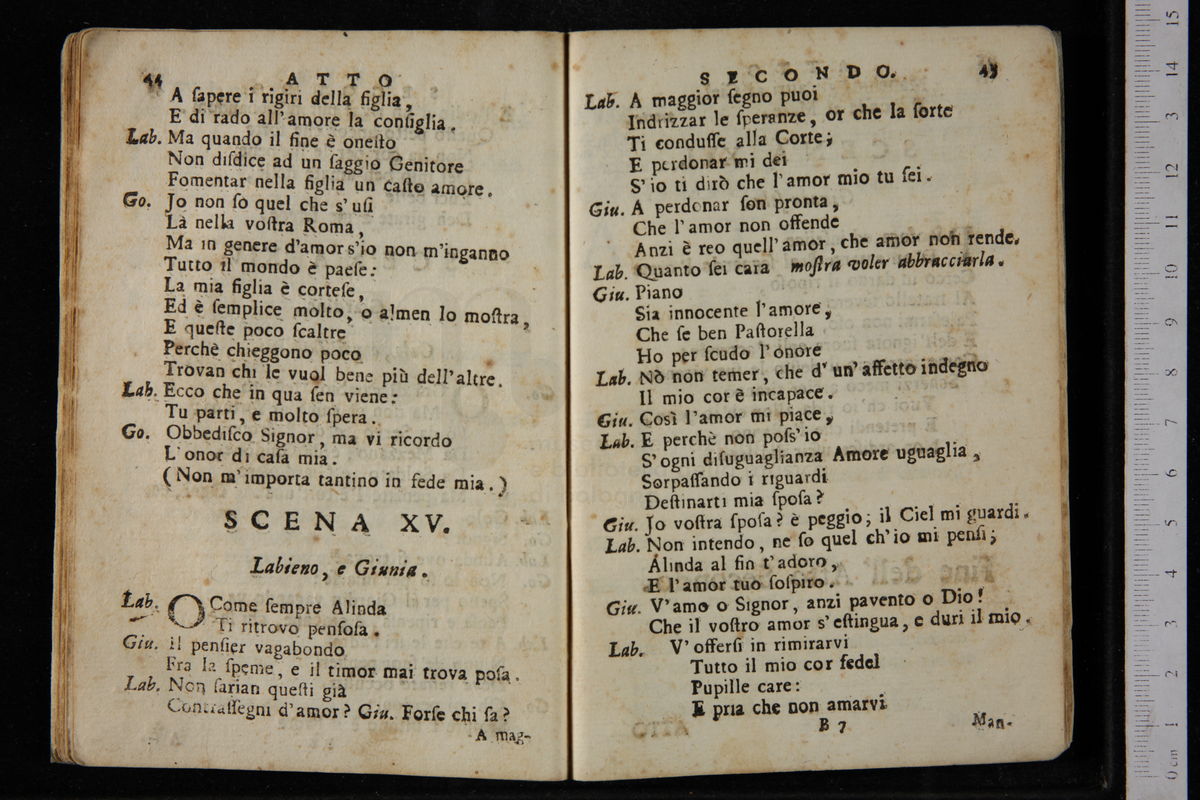 44 ATTO
A ſapere i rigiri della figlia,
E di rado all'amore la conſiglia.
Lab. Ma quando il fine è oneſto
Non diſdice ad un ſaggio Genitore
Fomentar nella figlia un caſto amore.
Go. Jo non ſo quel che s'uſi
Là nella voſtra Roma,
Ma in genere d'amor s'io non m'inganno
Tutto il mondo è paeſe:
La mia figlia è corteſe,
Ed è ſemplice molto, o almen lo moſtra,
E queſte poco ſcaltre
Perchè chieggono poco
Trovan chi le vuol bene più dell'altre.
Lab. Ecco che in qua ſen viene:
Tu parti, e molto ſpera.
Go. Obbediſco Signor, ma vi ricordo
L'onor di caſa mia.
(Non m'importa tantino in fede mia.)
SCENA XV.
Labieno, e Giunia.
Lab. O Come ſempre Alinda
Ti ritrovo penſoſa.
Giu. il penſier vagabondo
Fra la ſpeme, e il timor mai trova poſa.
Lab. Non ſarian queſti già
Contraſſegni d'amor? Giu. Forſe chi ſa?
A mag-
SECONDO. 45
Lab. A maggior ſegno puoi
Indrizzar le ſperanze, or che la ſorte
Ti conduſſe alla Corte;
E perdonar mi dei
S'io ti dirò che l'amor mio tu ſei.
Giu. A perdonar ſon pronta,
Che l'amor non offende
Anzi è reo quell'amor, che amor non rende.
Lab. Quanto ſei cara moſtra voler abbracciarla.
Giu. Piano
Sia innocente l'amore,
Che ſe ben Paſtorella
Ho per ſcudo l'onore
Lab. Nò non temer, che d'un'affetto indegno
Il mio cor è incapace.
Giu. Così l'amor mi piace,
Lab. E perchè non poſs'io
S'ogni diſuguaglianza Amore uguaglia,
Sorpaſſando i riguardi
Deſtinarti mia ſpoſa?
Giu. Jo voſtra ſpoſa? è peggio; il Ciel mi guardi.
Lab. Non intendo, ne ſo quel ch'io mi penſi;
Alinda al fin t'adoro,
E l'amor tuo ſoſpiro.
Giu. V'amo o Signor, anzi pavento o Dio!
Che il voſtro amor s'eſtingua, e duri il mio.
Lab. V'offerſi in rimirarvi
Tutto il mio cor fedel
Pupille care:
E pria che non amarvi
B 7 Man-
0 cm 1 2 3 4 5 6 7 8 9 10 11 12 3 14 15